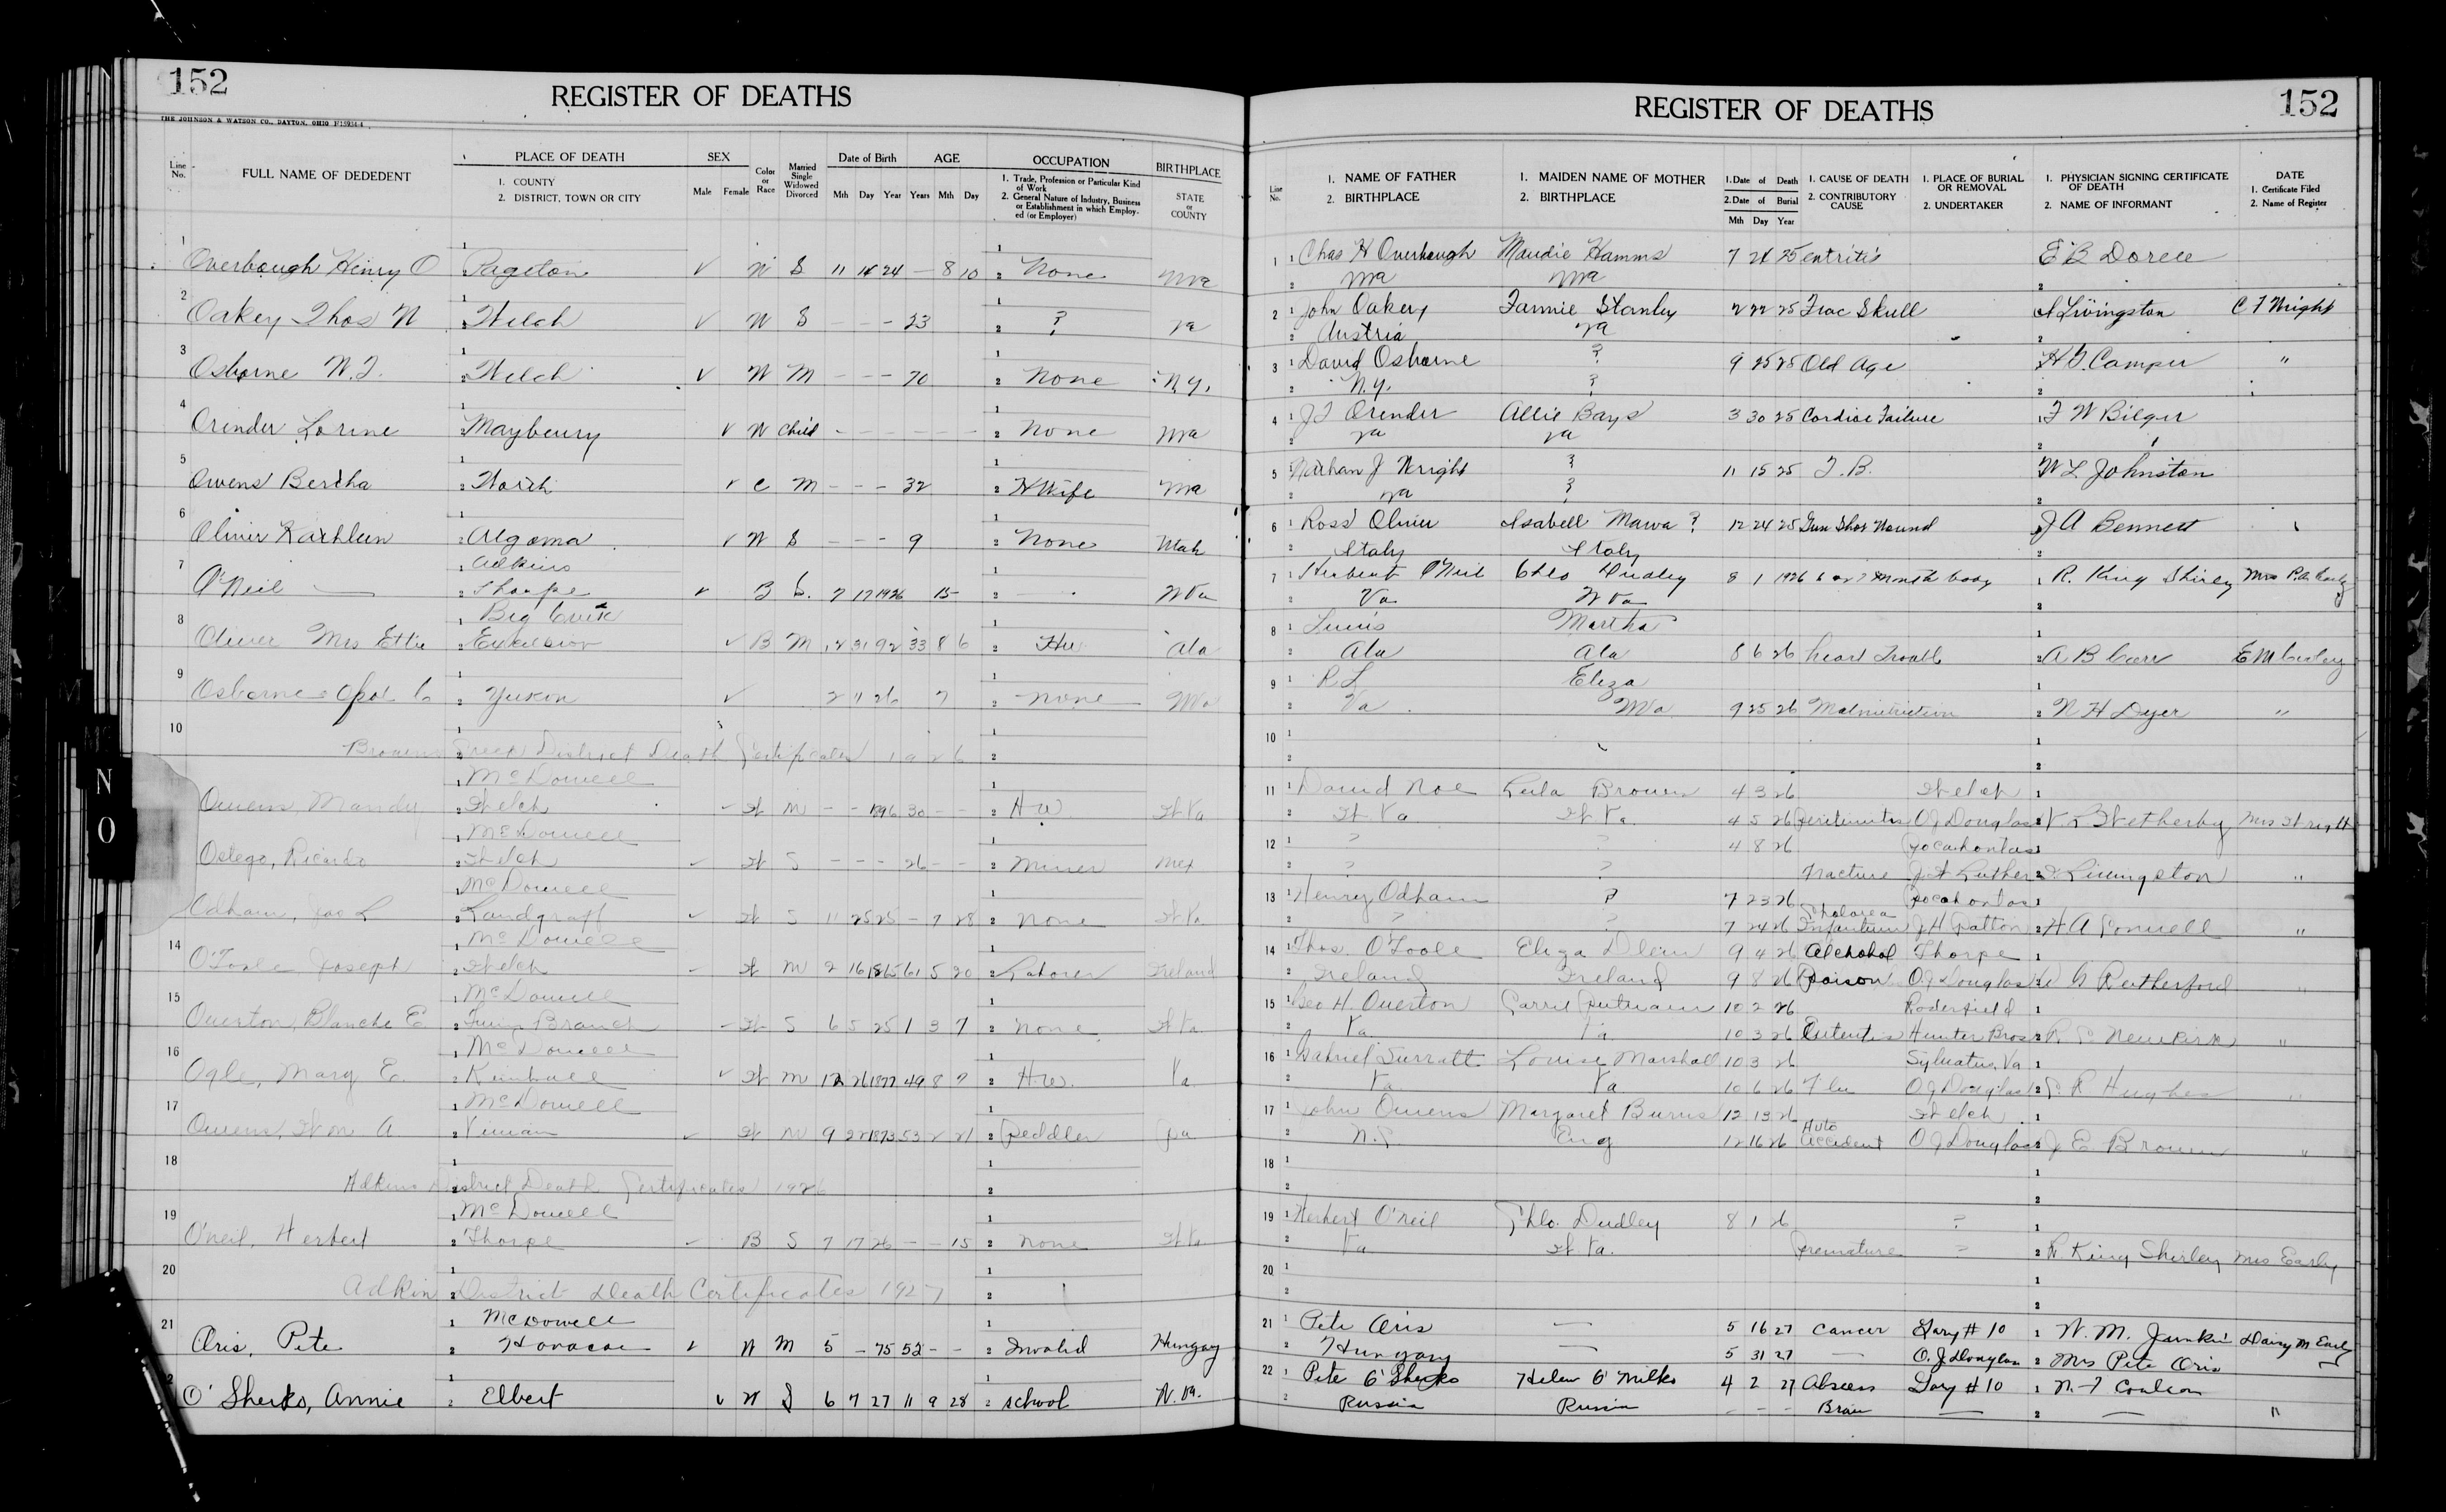 152
REGISTER OF DEATHS
THE JOHNSON & WATSON CO., DAYTON, OHIO
Line No.
FULL NAME OF DEDEDENT
PLACE OF DEATH
1. COUNTY
2. DISTRICT, TOWN OR CITY
SEX
Male Female
Color or Race
Married Single Widowed Divorced
Date of Birth
Mth Day Year
AGE
Years Mth Day
OCCUPATION
1. Trade, Profession or Particular Kind of Work
2. General Nature of Industry, Business or Establishment in which Employed (or Employer)
BIRTHPLACE
STATE or COUNTY
1 Overbaugh Henry O Pageton W S 11 14 24 - 8 10 None Wva
2 Oakey Thos W Welch W S - - - 23 ? Va
3 Osborne W.T. Welch W M - - - 70 None N.Y.
4 Orender Lorine Maybeury W Child None Wva
5 Owens Bertha Worth C M - - - 32 HWife Wva
6 Oliver Kathleen Algoma W S - - - 9 None Utah
7 O'Neil Adkins Thorpe B S. 7 17 1926 15 W Va
8 Oliver Mrs Ettie Big Creek Excelsior B M 12 31 92 33 8 6 Hw Ala
9 Osborne Opal C Yukon 2 11 26 7 None W Va
10 Browns Creek District Death Certificates 1926
Owens, Mandy McDowell Welch W M - - 1896 30 - - H.W. W Va
Ostego, Ricardo McDowell Welch W S - - - 26 - - Miner Mex
Odham, Jas L McDowell Landgraff W S 11 25 25 - 7 28 None W Va
14 O'Toole Joseph McDowell Welch W M 2 16 1865 61 5 20 Laborer Ireland
15 Overton, Blanche E McDowell Twin Branch W S 6 5 25 1 3 7 None W Va
16 Ogle, Mary E. McDowell Kimball W M 12 26 1877 49 8 7 H.W. Va
17 Owens, Wm A McDowell Vivian W M 9 22 1873 53 2 21 Peddler Pa
18 Adkins District Death Certificates 1926
19 O'neil, Herbert McDowell Thorpe B S 7 17 26 - - 15 None W Va
20 Adkin District Death Certificates 1927
21 Oris, Pete McDowell W M 5 - 75 52 - - Invalid Hungay
O'Sherks, Annie Elbert W S 6 7 27 11 9 28 school W. Va.
152
REGISTER OF DEATHS
Line No.
1. NAME OF FATHER
2. BIRTHPLACE
1. MAIDEN NAME OF MOTHER
2. BIRTHPLACE
1. Date of Death
2. Date of Burial
Mth Day Year
1. CAUSE OF DEATH
2. CONTRIBUTORY CAUSE
1. PLACE OF BURIAL OR REMOVAL
2. UNDERTAKER
1. PHYSICIAN SIGNING CERTIFICATE OF DEATH
2. NAME OF INFORMANT
DATE
1. Certificate Filed
2. Name of Register
1 Chas H Overbaugh Maudie Hamms 7 24 25 entritis E B Doree
Wva Wva
2 John Oakey Fannie Stanley 2 22 25 Frac Skull Livingston C F Wright
Austria Va
3 David Osborne ? 9 25 25 Old Age H G. Camper "
N.Y. ?
4 J T Orender Allie Bays 3 30 25 Cardiac Failure F W Bilger
Va Va
5 Nathan J Wright ? 11 15 25 T.B. W L Johnston
Va ?
6 Ross Oliver Isabell Mawa ? 12 24 25 Gun Shot Wound J A Bennett
Italy Italy
7 Herbert O'Neil Chlo Dudley 8 1 1926 6 or 7 month baby R. King Shirley
Va W Va
8 Martha
Ala Ala 8 6 26 heart Trouble A B Carr
9 R L Eliza
Va W Va 9 25 26 Malnutrition N H Dyer "
10
11 David Noe Lula Brown 4 3 26 Welch
W Va W Va. 4 5 26 Peritonitis O J Douglas Mrs Wright
12 ? ? 4 8 26 Pocahontas
? ? Fracture J H Luther Livingston "
13 Henry Odham ? 7 23 26 Pocahontas
? ? 7 24 26 Cholorea Infantum J H Patton H A Connell "
14 Thos. O'Toole Eliza 9 4 26 Alchohol Thorpe
Ireland Ireland 9 8 26 Poison O.J Douglas Rutherford "
15 Geo H. Overton Carrie Putnam 10 2 26 Roderfield
Va. Va 10 3 26 Hunter Bros R C Newkirk "
16 Gabriel Surratt Louise Marshall 10 3 26 Sylvatus, Va
Va Va 10 6 26 Flu O J Douglas R Hughes "
17 John Owens Margaret Burns 12 13 26 Welch
Eng 12 16 26 Auto Accident O J Douglas J E Brown "
18
19 Herbert O'Neil Chlo. Dudley 8 1 26 ?
Va W Va. Premature ? R King Shirley Mrs Earley
20
21 Pete Oris — 5 16 27 Cancer Gary # 10 W. M. Junkin
Hungary — 5 31 27 — O. J Douglas Mrs Pete Oris
22 Pete O'Sherks Helen O'Milko 4 2 27 Abscess Gary # 10
Russia Russia - - - Brain — — "
N
O